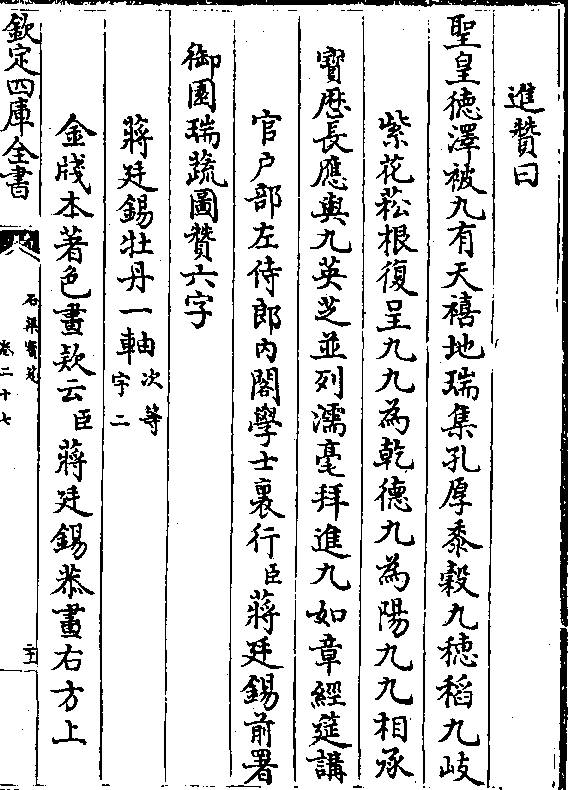 進贊曰
聖皇德澤被九有天禧地瑞集孔厚黍穀九穗稻九岐
紫花菘根復呈九九為乾德九為陽九九相承
寶厯長應與九英芝並列濡毫拜進九如章經筵講
官户部左侍郎内閣學士裏行臣蔣廷錫前署
御園瑞蔬圖贊六字
蔣廷錫牡丹一軸次等字二
金牋本著色畫款云臣蔣廷錫恭畫右方上
欽定四庫全書
石渠寳笈
卷二十七
二十五